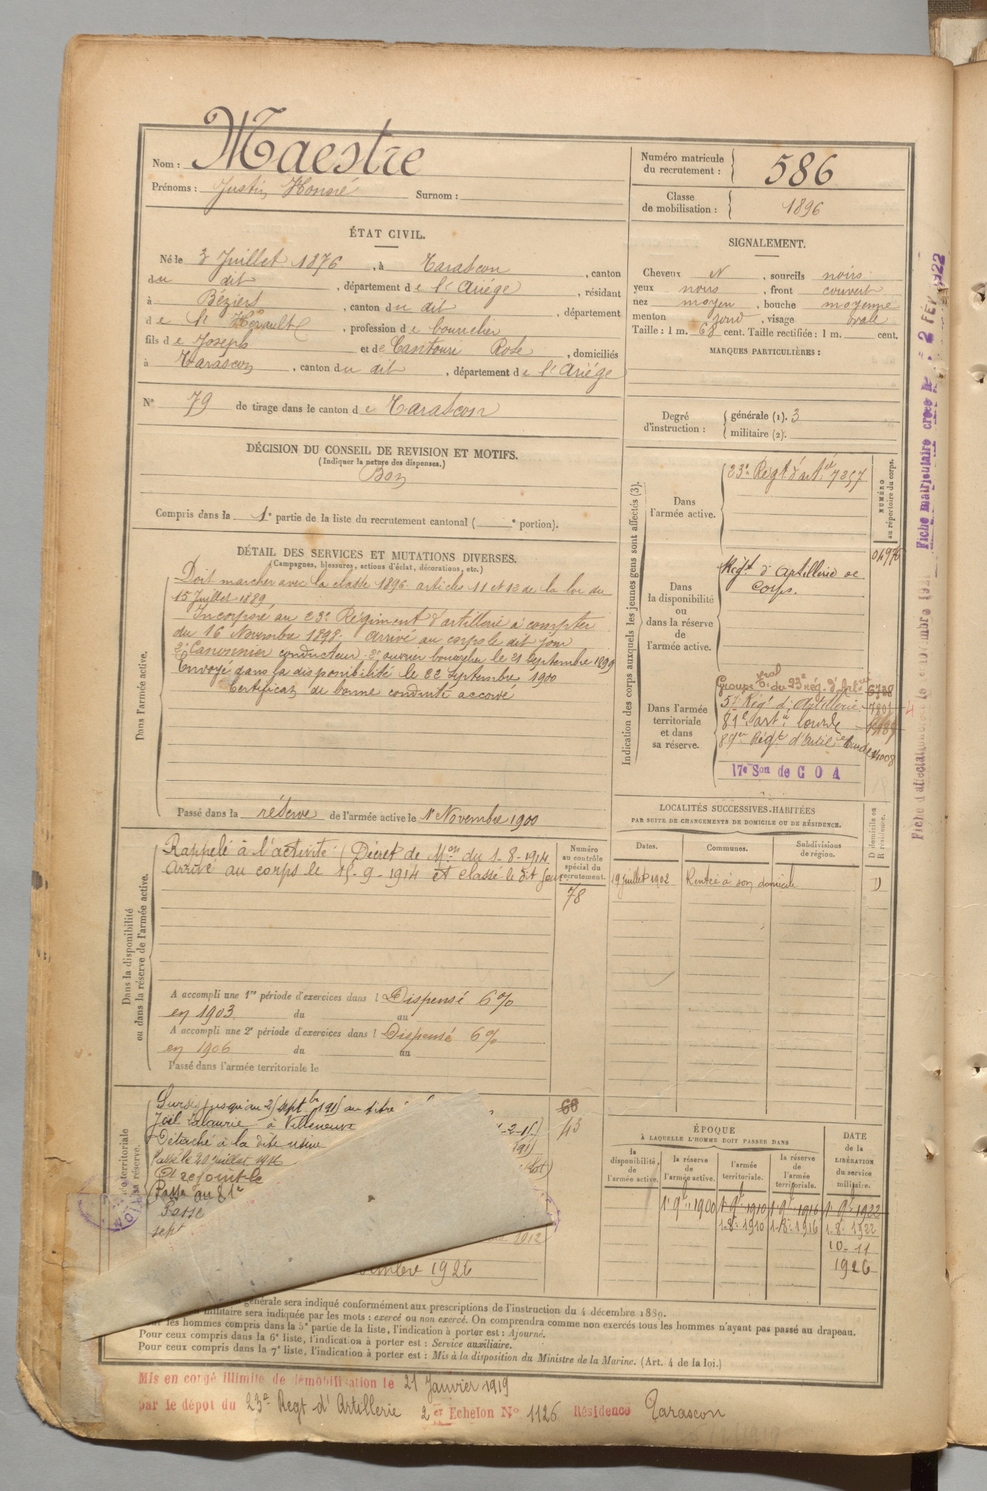 Nom : Maestre
Prénoms : Justin Honoré Surnom :
Numéro matricule du recrutement : 586
Classe de mobilisation : 1896
ÉTAT CIVIL.
Né le 3 Juillet 1876, à Tarascon, canton
du dit, département de l'Ariège, résidant
à Béziers, canton du dit, département
de l'Hérault, profession de boucher
fils de Joseph et de Cantouri Rose, domiciliés
à Tarascon, canton du dit, département de l'Ariége
N° 79 de tirage dans le canton de Tarascon
SIGNALEMENT.
Cheveux N, sourcils noirs
yeux noirs, front couvert
nez moyen, bouche moyenne
menton rond, visage ovale
Taille : 1 m. 68 cent. Taille rectifiée : 1 m. cent.
MARQUES PARTICULIÈRES :
Degré d'instruction : générale (1). 3
militaire (2).
DÉCISION DU CONSEIL DE REVISION ET MOTIFS.
(Indiquer la nature des dispenses.)
Bon
Compris dans la 1e partie de la liste du recrutement cantonal ( e portion).
DÉTAIL DES SERVICES ET MUTATIONS DIVERSES.
(Campagnes, blessures, actions d'éclat, décorations, etc.)
Dans l'armée active.
Doit marcher avec la classe 1896 articles 11 et 10 de la loi du
15 Juillet 1889
Incorporé au 23e Régiment d'artillerie à compter
du 16 Novembre 1898. Arrivé au corps le dit jour
2e Canonnier conducteur 2e ouvrier bourrelier le 21 Septembre 1899
Envoyé dans la disponibilité le 22 Septembre 1900
Certificat de bonne conduite accordé
Passé dans la réserve de l'armée active le 1er Novembre 1900
Indication des corps auxquels les jeunes gens sont affectés (3).
NUMÉRO au répertoire du corps.
Dans l'armée active.
23e Regt d'artie 7357
Dans la disponibilité ou dans la réserve de l'armée active.
Regt d'Artillerie de
Corps.
Dans l'armée territoriale et dans sa réserve.
Groupe Tial du 23e Rég. d'Artie 6728
5e Régt d'Artillerie
81e artie lourde
17e Son de C O A
Fiche matricule créée le 2 FEV 1922
Dans la disponibilité ou dans la réserve de l'armée active.
Rappelé à l'activité (Décret de Mon du 1-8-1914
Arrivé au corps le 15-9-1914 et classé le dit jour
Numéro au contrôle spécial du recrutement.
78
A accompli une 1re période d'exercices dans l Dispensé 6%
en 1903 du au
A accompli une 2e période d'exercices dans l Dispensé 6%
en 1906 du au
Passé dans l'armée territoriale le
LOCALITÉS SUCCESSIVES HABITÉES
PAR SUITE DE CHANGEMENTS DE DOMICILE OU DE RÉSIDENCE.
Dates. Communes. Subdivisions de région. D domicile ou R résidence.
19 juillet 1902 Rentré à son domicile D
Sursis jusqu'au
à Villeneuve
Détaché à la dite usine
Passé le 20 juillet 1916
Passé au 81e
Passé
sept
1912
1926
68
43
ÉPOQUE
À LAQUELLE L'HOMME DOIT PASSER DANS
la disponibilité de l'armée active. la réserve de l'armée active. l'armée territoriale. la réserve de l'armée territoriale.
DATE DE LA LIBÉRATION du service militaire.
1er 9e 1900 1er 9e 1910 1er 9e 1916 1er 9e 1922
1-8-1910 1-8-1916 1-8-1922
10-11
1926
générale sera indiqué conformément aux prescriptions de l'instruction du 4 décembre 1889.
militaire sera indiquée par les mots : exercé ou non exercé. On comprendra comme non exercés tous les hommes n'ayant pas passé au drapeau.
les hommes compris dans la 5e partie de la liste, l'indication à porter est : Ajourné.
Pour ceux compris dans la 6e liste, l'indication à porter est : Service auxiliaire.
Pour ceux compris dans la 7e liste, l'indication à porter est : Mis à la disposition du Ministre de la Marine. (Art. 4 de la loi.)
Mis en congé illimité de démobilisation le 21 Janvier 1919
par le dépôt du 23e Regt d'Artillerie 2e Echelon N° 1126 Résidence Tarascon